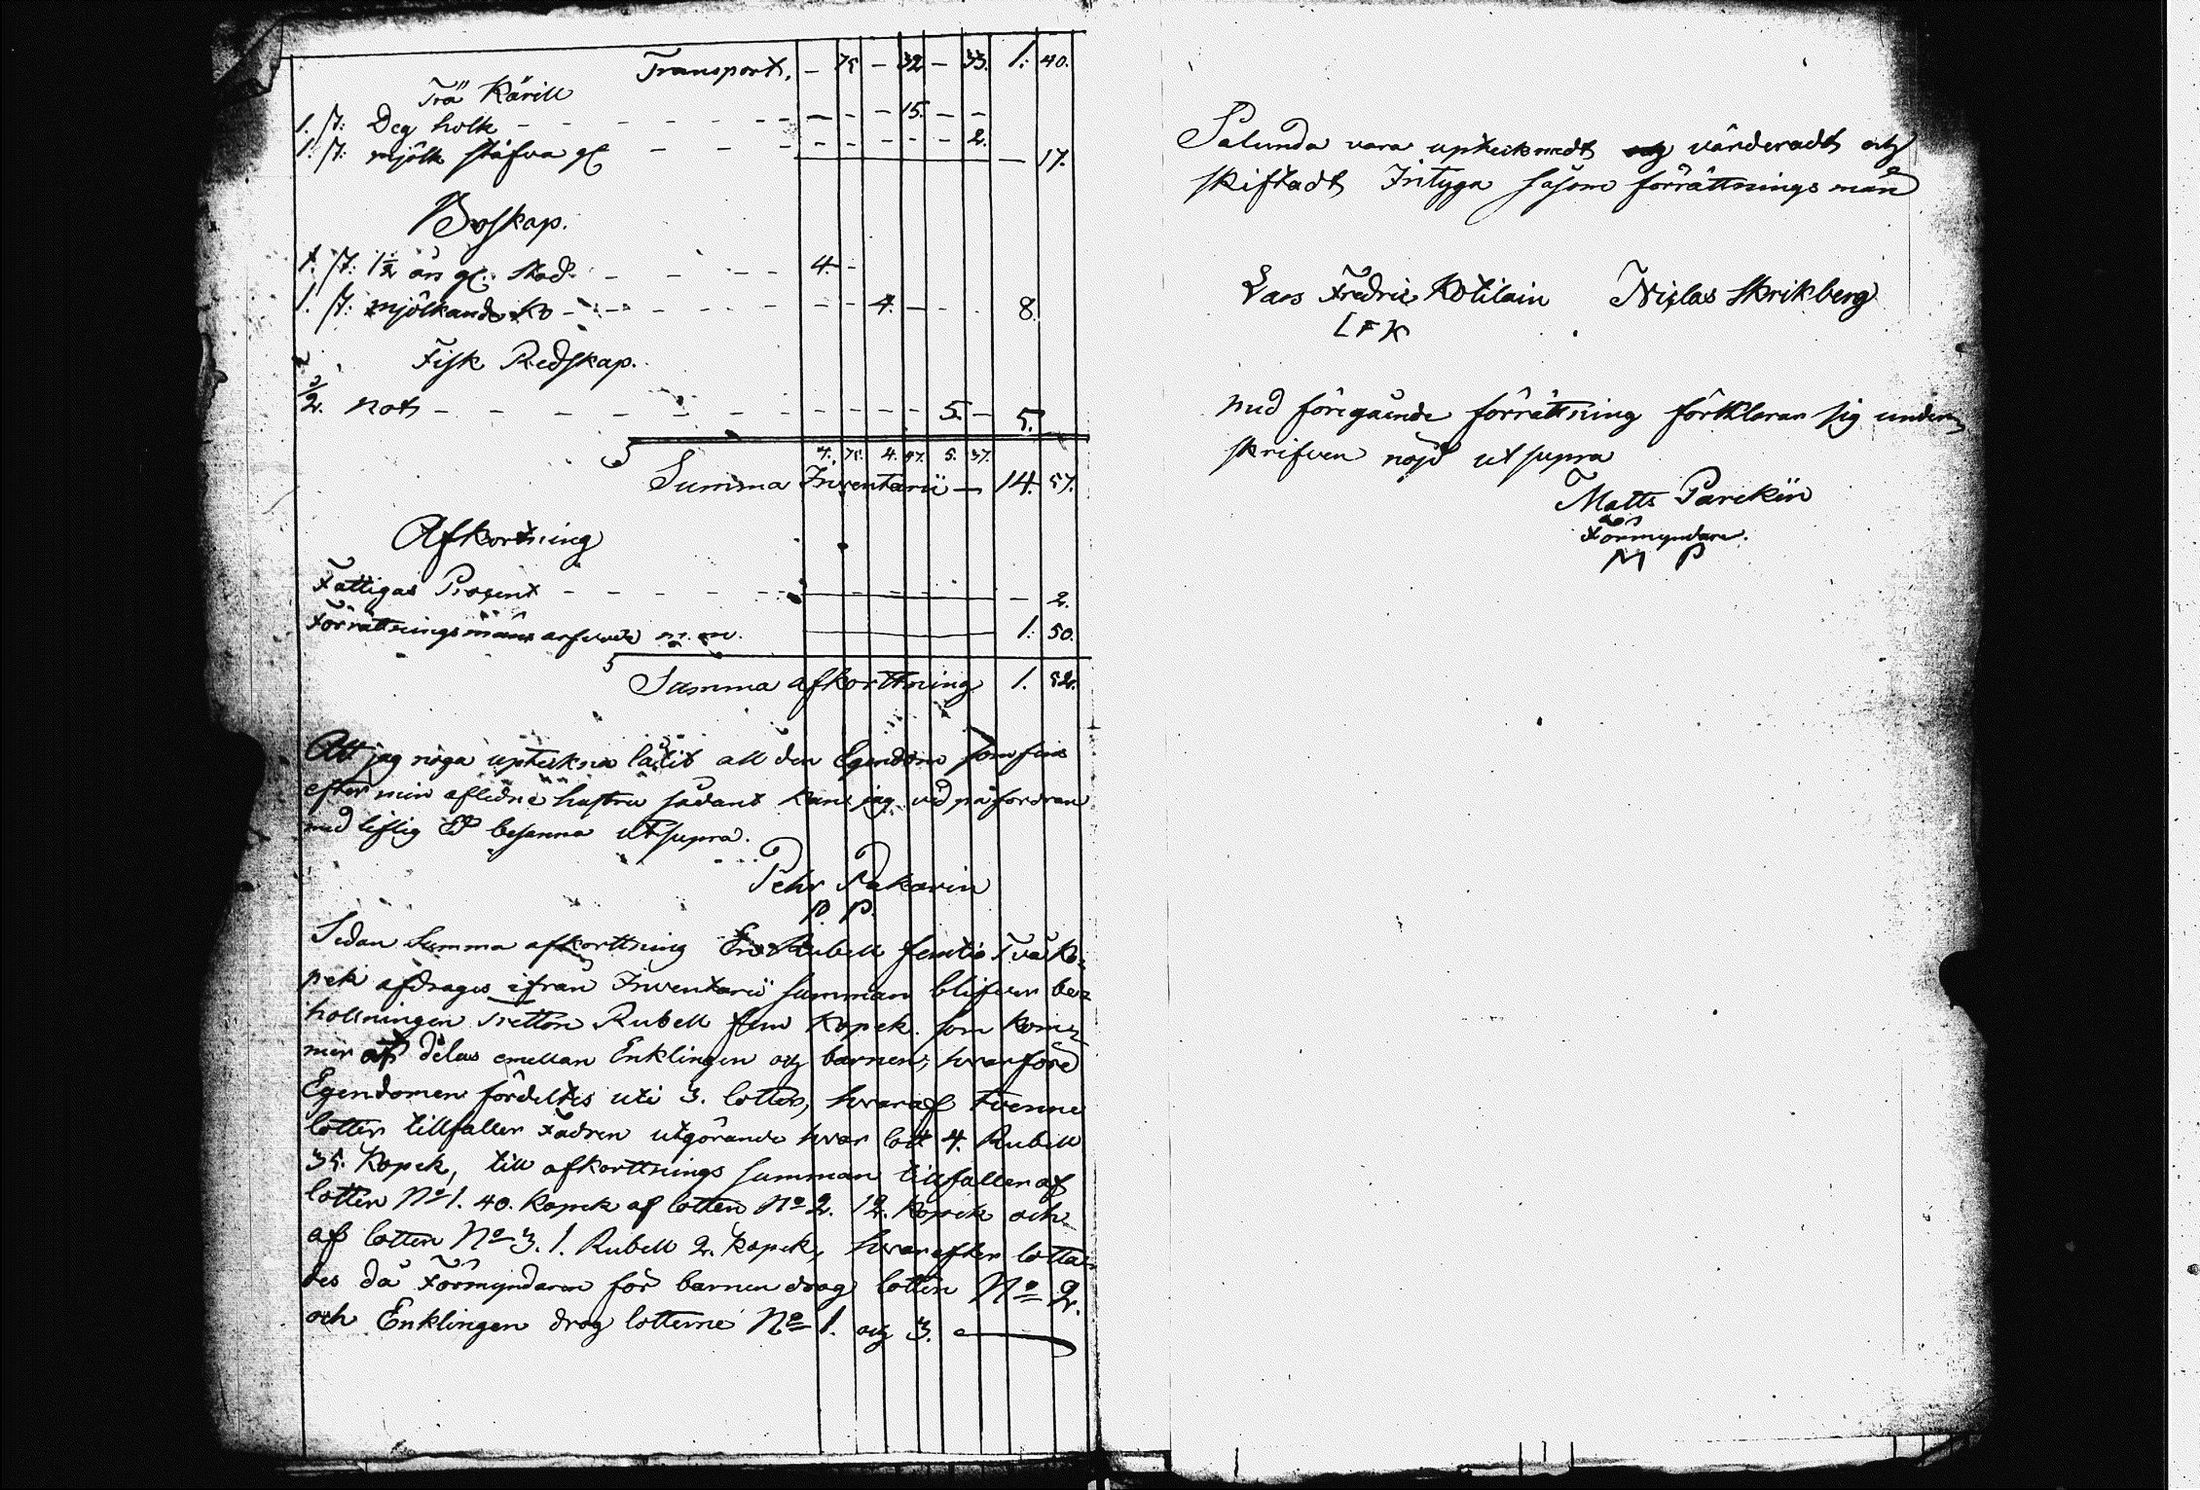 Transport. – 75 – 32 – 33. 1. 40.
Trä Kärill
1. st: Deg holk – – – – – – – 15. – –
1. st: mjölk stäfva gl – – – – – – – 2. – 17.
Boskap.
1. st: 1½ års gl: stod – – – – 4. –
1. st: mjölkande Ko – – – – – – 4. – – 8.
Fisk Redskap.
½ not – – – – – – – – – – – 5. – 5.
4. 75. 4. 47. 5. 37.
Summa Inventarii – 14. 57.
Afkortning
Fattigas Prosent – – – – – – 2.
Förrättningsmäns arfvode m. m. 1. 50.
Summa afkorttning 1. 52.
Att jag noga uptekna låtit all den Egendom som fins
efter min aflidne hustru sådant kan jag vid påfordran
med liflig Ed besanna ut supra.
Pehr Pakarin
P. P.
Sedan Summa afkorttning En Rubell femtio Två Ko-
pek afdrages ifrån Inventarii summan blifver be-
hollningen Tretton Rubell fem Kopek. som kom-
mer att delas emellan Enklingen och barnen, hvarföre
Egendomen fördeltes uti 3. lotter, hvaraf tvenne
lotter tillfaller Fadren utgörande hvar lott 4. Rubell
35. Kopek, till afkorttnings summan tillfaller af
lotten No 1. 40. Kopek af lotten No 2. 12. Kopek och
af lotten No 3. 1. Rubell 2. Kopek, hvarefter lotta-
des då Förmyndaren för barnen drog lotten No 2.
och Enklingen drog lotterne No 1. och 3.
Salunda vara upteknadt och värderadt och
skiftadt Intyga såsom förrättnings män
Lars Fredric Kotilain Niclas Skrikberg
L F K
med föregående förrättning förklarar sig under-
skrifven nöjd ut supra
Matts Parckin
Förmyndare.
M P